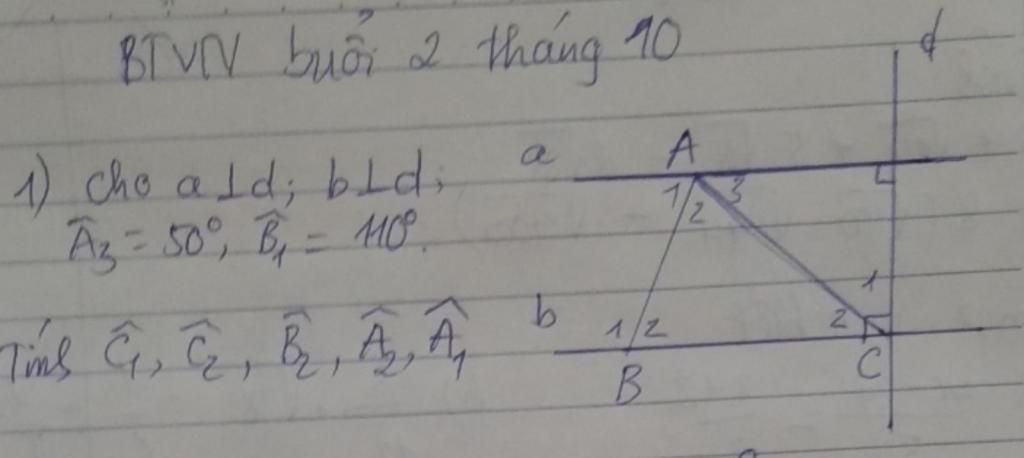 BTVN buổi 2 tháng 10
1) Cho a⊥d; b⊥d;
Â₃ = 50°, B̂₁ = 110°.
Tính Ĉ₁, Ĉ₂, B̂₂, Â₂, Â₁
d
a A
1 2 3
1
b 1 2 2
B C